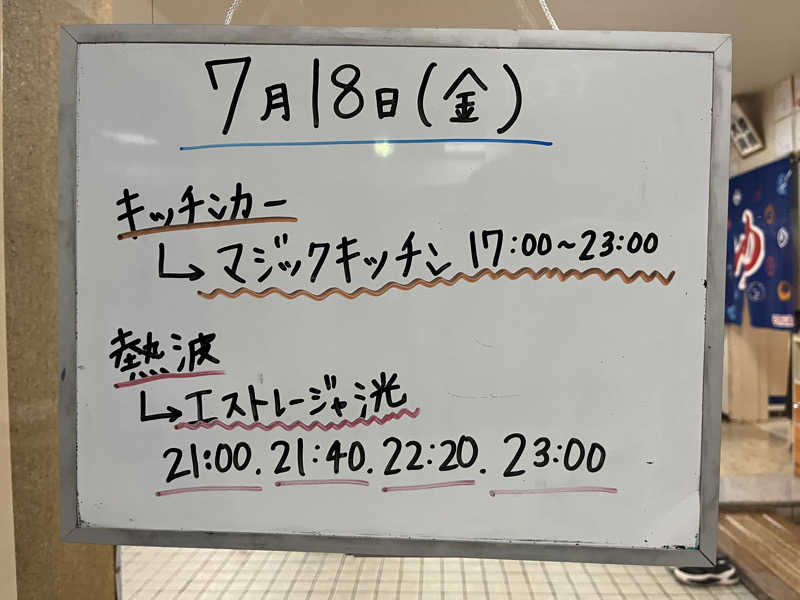 7月18日(金)
キッチンカー
↳マジックキッチン 17:00~23:00
熱波
↳エストレージャ洸
21:00. 21:40. 22:20. 23:00
ゆ